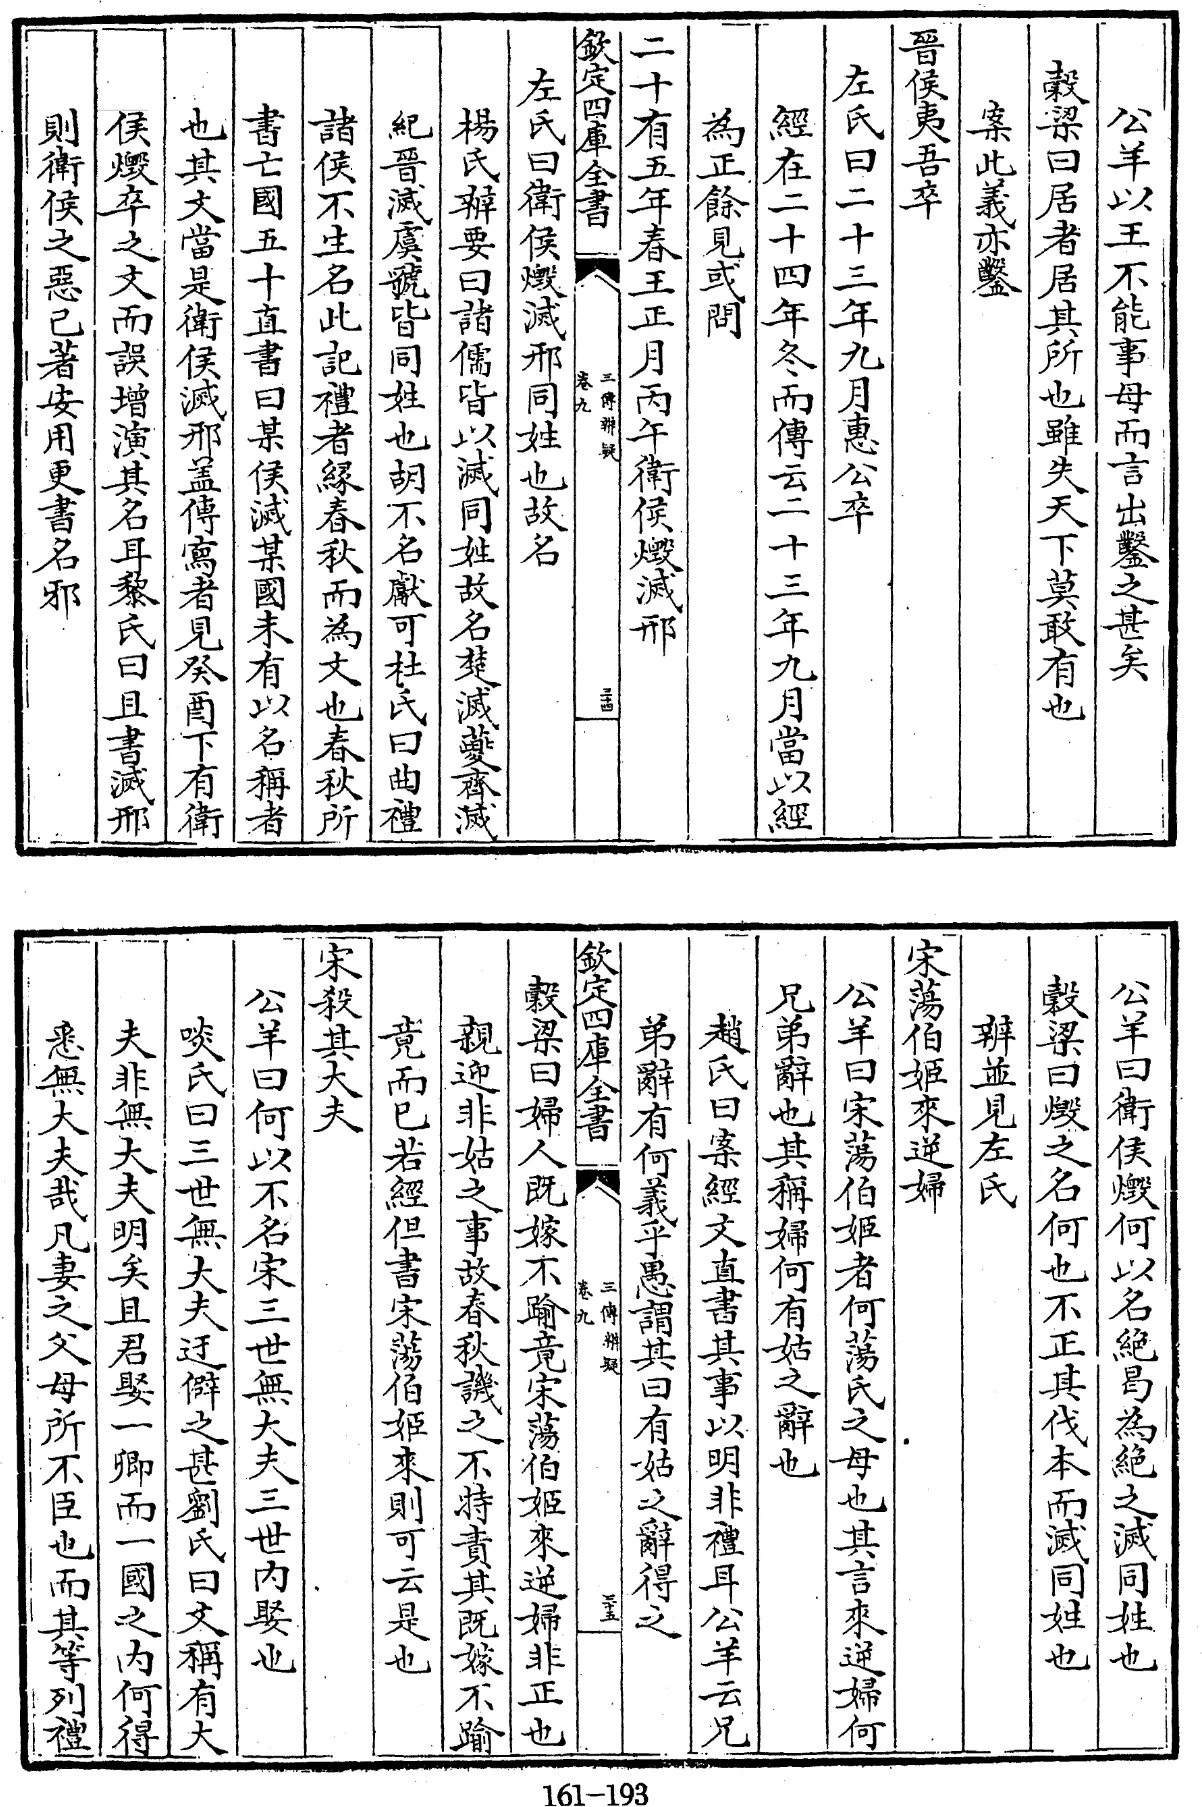 公羊以王不能事母而言出鑿之甚矣
榖梁曰居者居其所也雖失天下莫敢有也
案此義亦鑿
晉侯夷吾卒
左氏曰二十三年九月惠公卒
經在二十四年冬而傳云二十三年九月當以經
為正餘見或問
二十有五年春王正月丙午衛侯燬滅邢
欽定四庫全書
三傳辨疑
卷九
三十四
左氏曰衛侯燬滅邢同姓也故名
楊氏辨要曰諸儒皆以滅同姓故名楚滅夔齊滅
紀晉滅虞虢皆同姓也胡不名獻可杜氏曰曲禮
諸侯不生名此記禮者緣春秋而為文也春秋所
書亡國五十直書曰某侯滅某國未有以名稱者
也其文當是衛侯滅邢盖傳寫者見癸酉下有衛
侯燬卒之文而誤增演其名耳黎氏曰且書滅邢
則衛侯之惡已著安用更書名邪
公羊曰衛侯燬何以名絶曷為絶之滅同姓也
榖梁曰燬之名何也不正其伐本而滅同姓也
辨並見左氏
宋蕩伯姬來逆婦
公羊曰宋蕩伯姬者何蕩氏之母也其言來逆婦何
兄弟辭也其稱婦何有姑之辭也
趙氏曰案經文直書其事以明非禮耳公羊云兄
弟辭有何義乎愚謂其曰有姑之辭得之
欽定四庫全書
三傳辨疑
卷九
三十五
榖梁曰婦人既嫁不踰竟宋蕩伯姬來逆婦非正也
親迎非姑之事故春秋譏之不特責其既嫁不踰
竟而已若經但書宋蕩伯姬來則可云是也
宋殺其大夫
公羊曰何以不名宋三世無大夫三世内娶也
啖氏曰三世無大夫迂僻之甚劉氏曰文稱有大
夫非無大夫明矣且君娶一卿而一國之内何得
悉無大夫哉凡妻之父母所不臣也而其等列禮
161-193